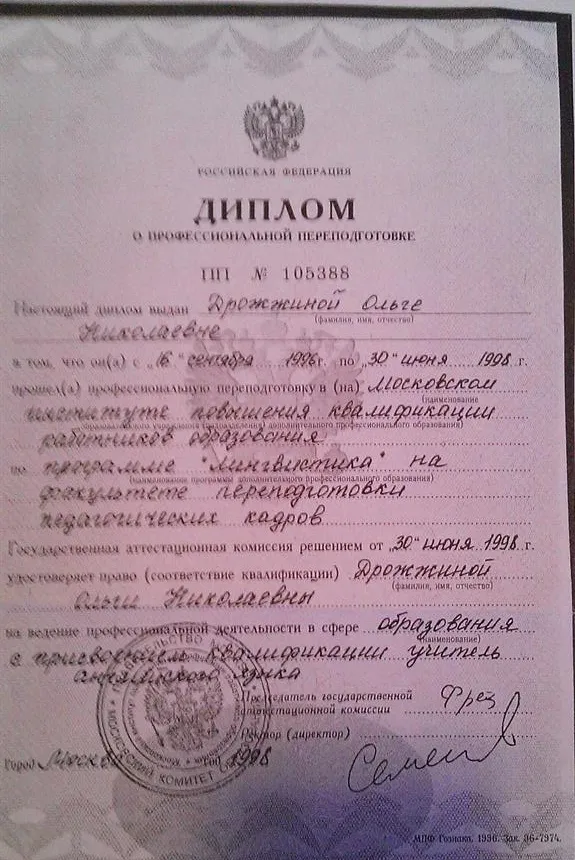 РОССИЙСКАЯ ФЕДЕРАЦИЯ
ДИПЛОМ
О ПРОФЕССИОНАЛЬНОЙ ПЕРЕПОДГОТОВКЕ
ПП № 105388
Настоящий диплом выдан Дрожжиной Ольге
(фамилия, имя, отчество)
Николаевне
в том, что он(а) с „16" сентября 1996г. по „30" июня 1998 г.
прошел(а) профессиональную переподготовку в (на) Московском
(наименование
институте повышения квалификации
образовательного учреждения (подразделения) дополнительного профессионального образования)
работников образования
по программе "лингвистика" на
(наименование программы дополнительного профессионального образования)
факультете переподготовки
педагогических кадров
Государственная аттестационная комиссия решением от „30" июня 1998 г.
удостоверяет право (соответствие квалификации) Дрожжиной
(фамилия, имя, отчество)
Ольги Николаевны
на ведение профессиональной деятельности в сфере образования
(наименование)
с присвоением квалификации учитель
английского языка
Председатель государственной
аттестационной комиссии
Ректор (директор)
Город Москва год 1998
МОСКОВСКИЙ КОМИТЕТ
МПФ Гознака. 1996. Зак. 96-7974.